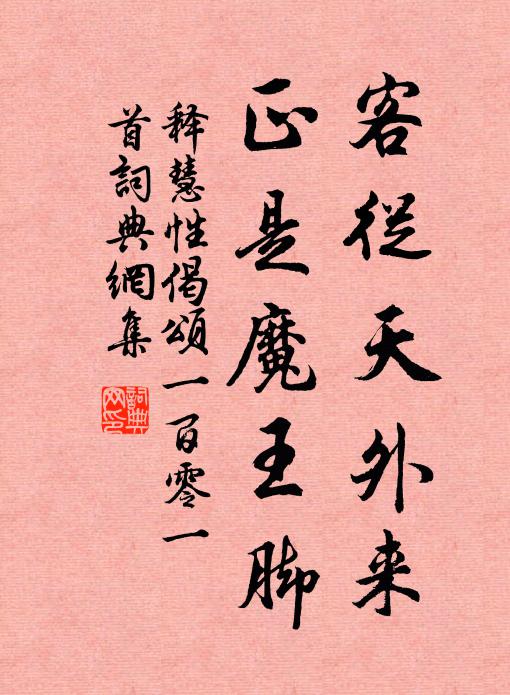 客從天外来
正是魔王脚
释慧性偈頌一百零一
首詞典網集
詞典
网印